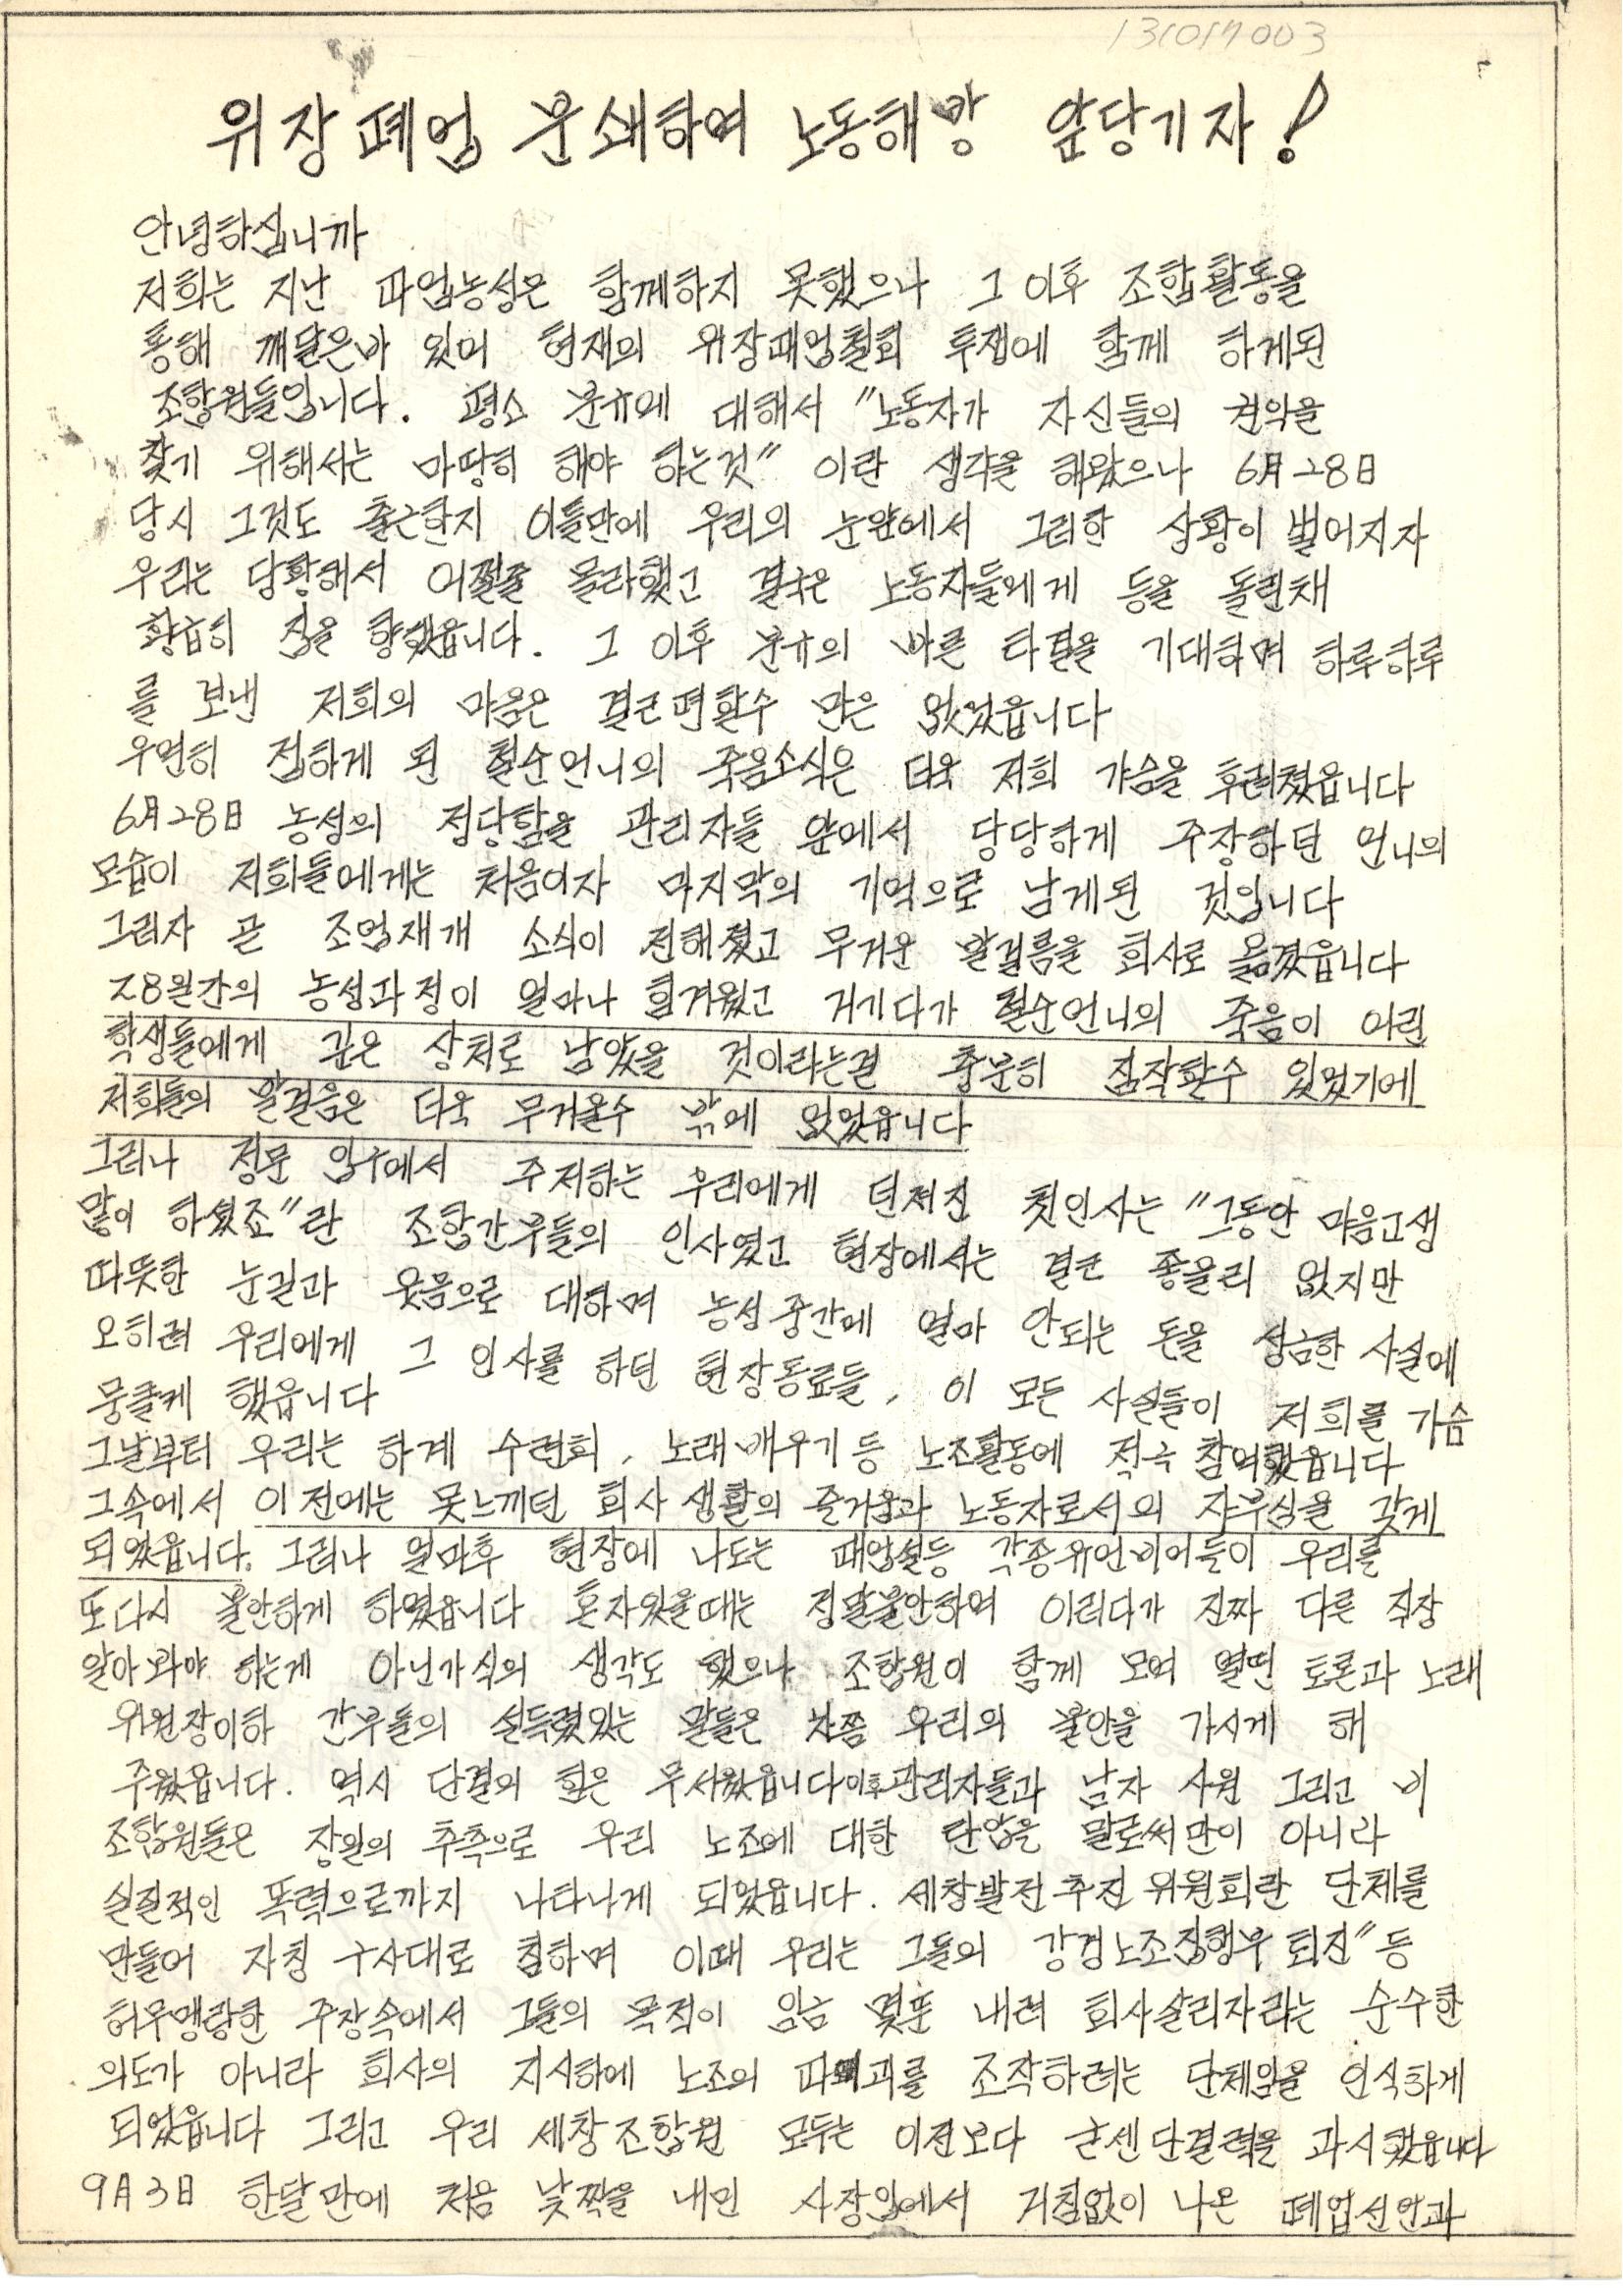 131017003
위장폐업 분쇄하여 노동해방 앞당기자!
안녕하십니까
저희는 지난 파업농성은 함께하지 못했으나 그 이후 조합활동을
통해 깨달은바 있어 현재의 위장폐업철회 투쟁에 함께 하게된
조합원들입니다. 평소 분규에 대해서 "노동자가 자신들의 권익을
찾기 위해서는 마땅히 해야 하는것" 이란 생각을 해왔으나 6月28日
당시 그것도 출근한지 이틀만에 우리의 눈앞에서 그러한 상황이 벌어지자
우리는 당황해서 어쩔줄 몰라했고 결국은 노동자들에게 등을 돌린채
황급히 집을 향했읍니다. 그 이후 분규의 빠른 타결을 기대하며 하루하루
를 보낸 저희의 마음은 결코편할수 만은 없었읍니다
우연히 접하게 된 철순언니의 죽음소식은 더욱 저희 가슴을 후려쳤읍니다
6月28日 농성의 정당함을 관리자들 앞에서 당당하게 주장하던 언니의
모습이 저희들에게는 처음이자 마지막의 기억으로 남게된 것입니다
그러자 곧 조업재개 소식이 전해졌고 무거운 발걸름을 회사로 옮겼읍니다
28일간의 농성과정이 얼마나 힘겨웠고 거기다가 철순언니의 죽음이 어린
학생들에게 깊은 상처로 남았을 것이라는걸 충분히 짐작할수 있었기에
저희들의 발걸음은 더욱 무거울수 밖에 없었읍니다
그러나 정문 입구에서 주저하는 우리에게 던져진 첫인사는 "그동안 마음고생
많이 하셨죠"란 조합간부들의 인사였고 현장에서는 결코 좋을리 없지만
따뜻한 눈길과 웃음으로 대하며 농성중간에 얼마 안되는 돈을 성금한 사실에
오히려 우리에게 그 인사를 하던 현장동료들, 이 모든 사실들이 저희를 가슴
뭉클케 했읍니다
그날부터 우리는 하계 수련회, 노래배우기등 노조활동에 적극 참여했읍니다
그속에서 이전에는 못느끼던 회사생활의 즐거움과 노동자로서의 자부심을 갖게
되었읍니다. 그러나 얼마후 현장에 나도는 폐업설등 각종유언비어들이 우리를
또다시 불안하게 하였읍니다 혼자있을때는 정말불안하여 이러다가 진짜 다른 직장
알아봐야 하는게 아닌가식의 생각도 했으나 조합원이 함께 모여 열띤 토론과 노래
위원장이하 간부들의 설득력있는 말들은 차츰 우리의 불안을 가시게 해
주웠읍니다. 역시 단결의 힘은 무서웠읍니다이후관리자들과 남자 사원 그리고 비
조합원들은 장일의 추측으로 우리 노조에 대한 탄압을 말로써만이 아니라
실질적인 폭력으로까지 나타나게 되었읍니다. 세창발전추진위원회란 단체를
만들어 자칭 구사대로 칭하며 이때 우리는 그들의 강경노조집행부 퇴진" 등
허무맹랑한 주장속에서 그들의 목적이 임금 몇푼 내려 회사살리자라는 순수한
의도가 아니라 회사의 지시하에 노조의 파괴를 조작하려는 단체임을 인식하게
되었읍니다 그리고 우리 세창조합원 모두는 이전보다 굳센단결력을 과시했읍니다
9月3日 한달만에 처음 낯짝을 내민 사장입에서 거침없이 나온 폐업선언과